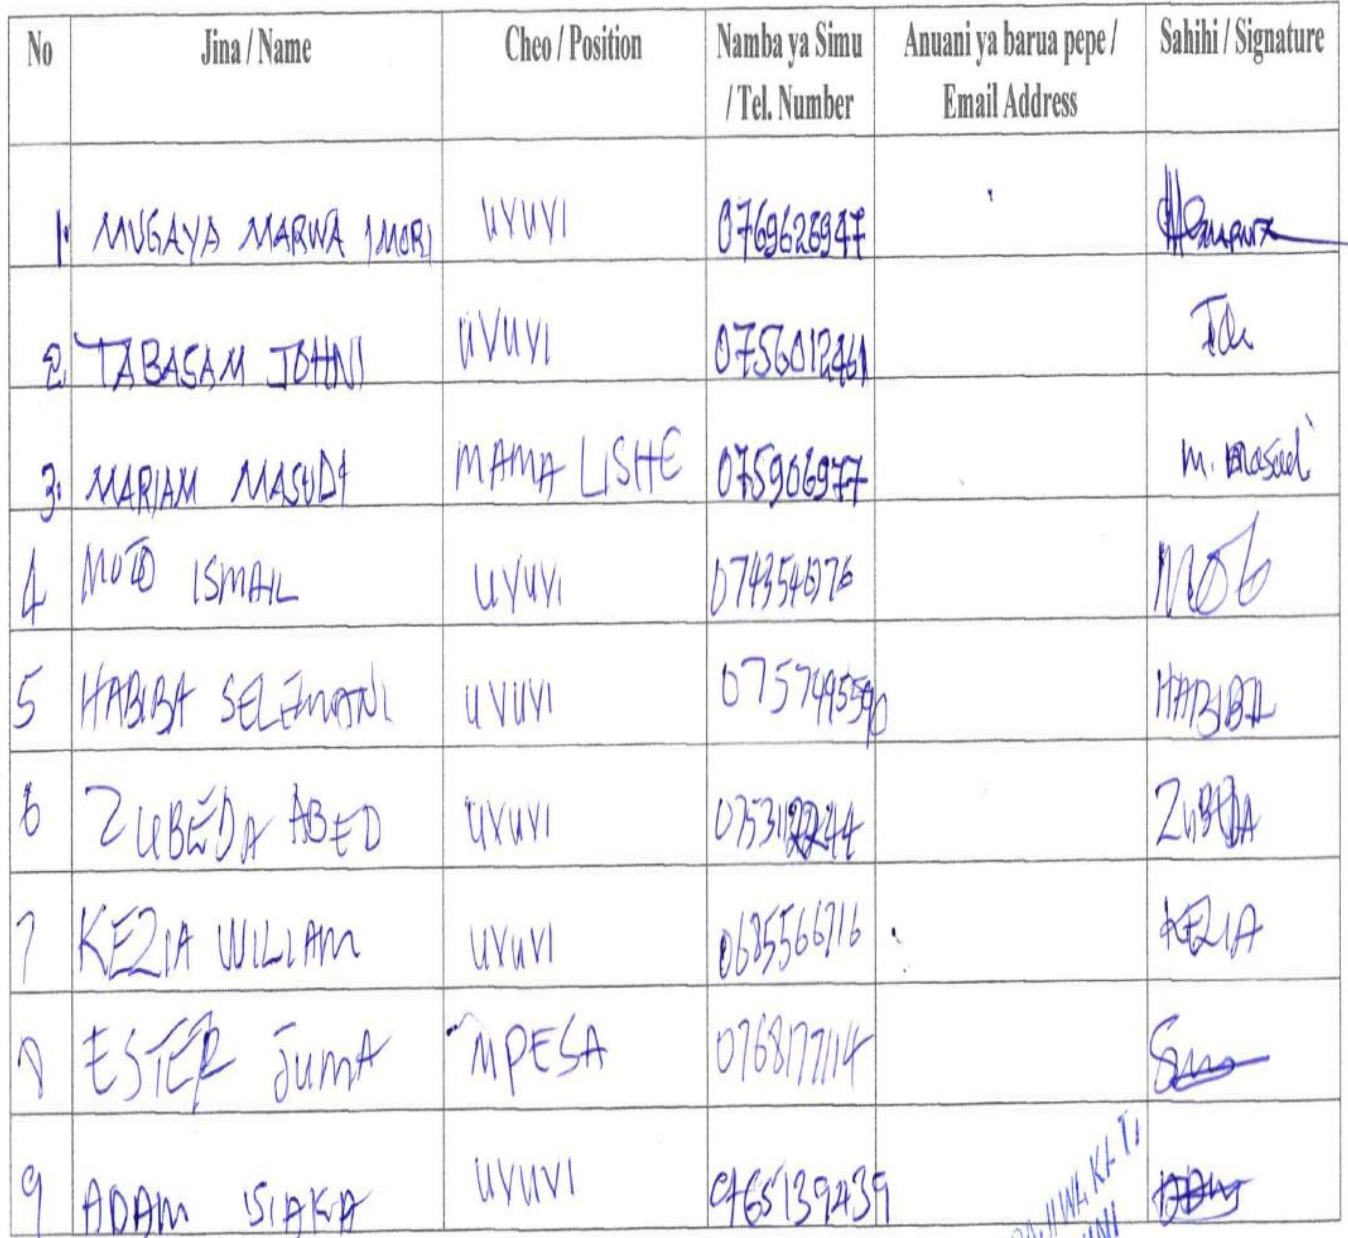 No Jina / Name Cheo / Position Namba ya Simu / Tel. Number Anuani ya barua pepe / Email Address Sahihi / Signature
1. MUGAYA MARWA IMORI UVUVI 0769626947
2. TABASAM JOHNI UVUVI 0756012461
3. MARIAM MASUDI MAMA LISHE 075906977 M. Masudi
4 MOTO ISMAIL UVUVI
5 HABIBA SELEMANI UVUVI 0757495590 HABIBA
6 ZUBEDA ABED UVUVI ZUBEDA
7 KEZIA WILIAM UVUVI 0685566716 KEZIA
8 ESTER JUMA MPESA 0768177114
9 ADAM ISIAKA UVUVI 0765139439